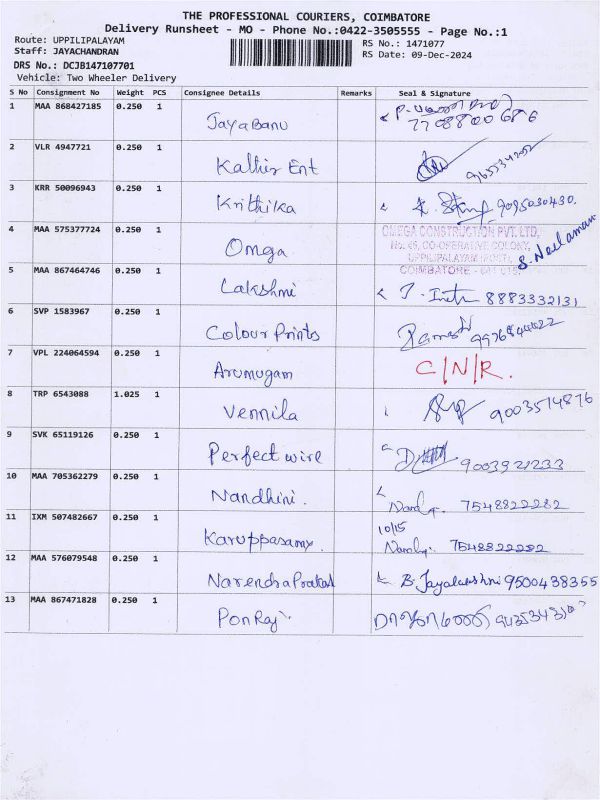 THE PROFESSIONAL COURIERS, COIMBATORE
Delivery Runsheet - MO - Phone No.:0422-3505555 - Page No.:1
Route: UPPILIPALAYAM
RS No.: 1471077
Staff: JAYACHANDRAN
RS Date: 09-Dec-2024
DRS No.: DCJB147107701
Vehicle: Two Wheeler Delivery
S No Consignment No Weight PCS Consignee Details Remarks Seal & Signature
1 MAA 868427185 0.250 1 JayaBanu 7708800686
2 VLR 4947721 0.250 1 Kathir Ent
3 KRR 50096943 0.250 1 Krithika 9095030430.
4 MAA 575377724 0.250 1 Omega
OMEGA CONSTRUCTION PVT. LTD,
No. 46, CO-OPERATIVE COLONY,
UPPILIPALAYAM (POST),
COIMBATORE - 641 015
S. Neelaman
5 MAA 867464746 0.250 1 Lakshmi 8883332131
6 SVP 1583967 0.250 1 Colour Prints Ramesh
7 VPL 224064594 0.250 1 Arumugam C/N/R.
8 TRP 6543088 1.025 1 Vennila 9003514876
9 SVK 65119126 0.250 1 Perfect wire 9003921233
10 MAA 705362279 0.250 1 Nandhini. 7548822282
11 IXM 507482667 0.250 1 Karuppasamy 10/15 7548822282
12 MAA 576079548 0.250 1 NarendraPrakash B. Jayalakshmi 9500438355
13 MAA 867471828 0.250 1 PonRaj